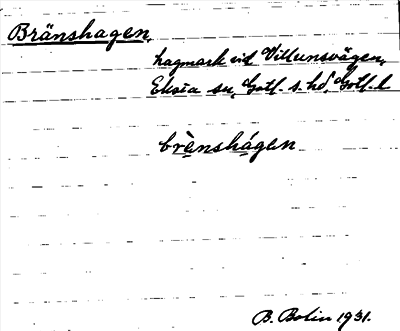 Bränshagen,
hagmark vid Villunsvägen,
Eksta sn, Gotl. s. hd, Gotl. l
brènshágen
B. Bolin 1931.